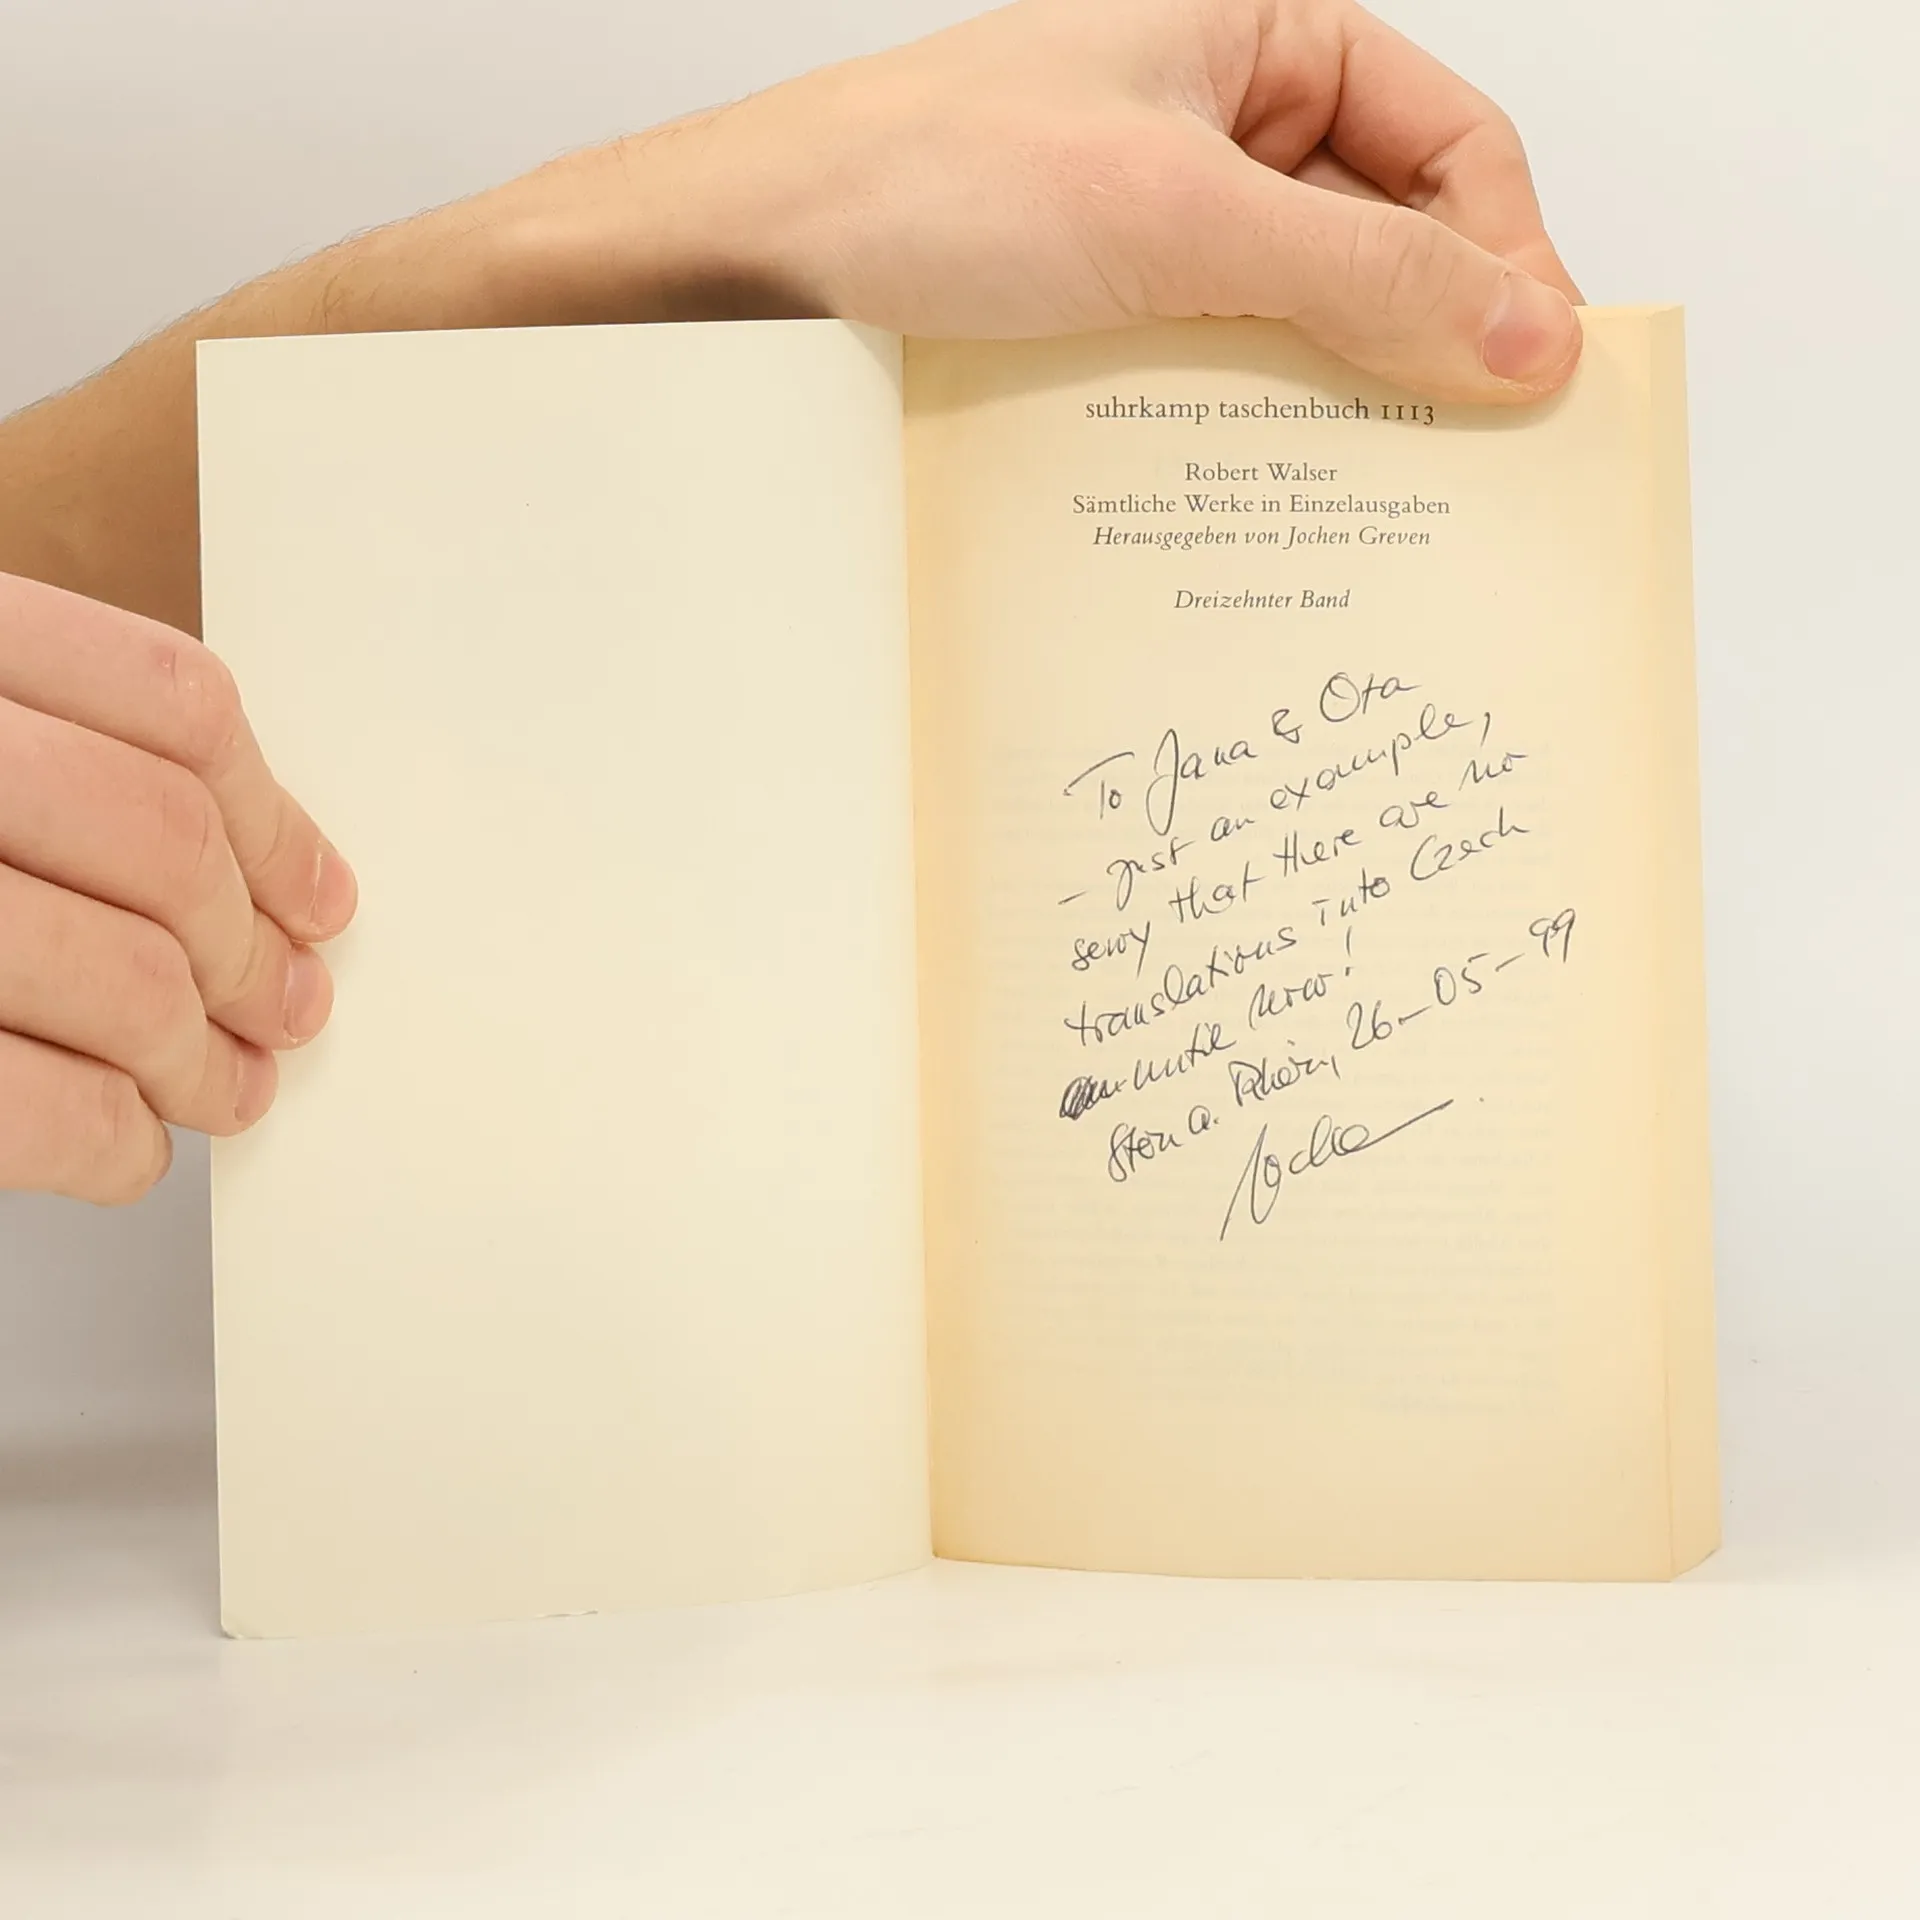 suhrkamp taschenbuch 1113
Robert Walser
Sämtliche Werke in Einzelausgaben
Herausgegeben von Jochen Greven
Dreizehnter Band
To Jana & Ota
– just an example,
sorry that there are no
translations into Czech
until now!
Stein a. Rhein, 26–05–99